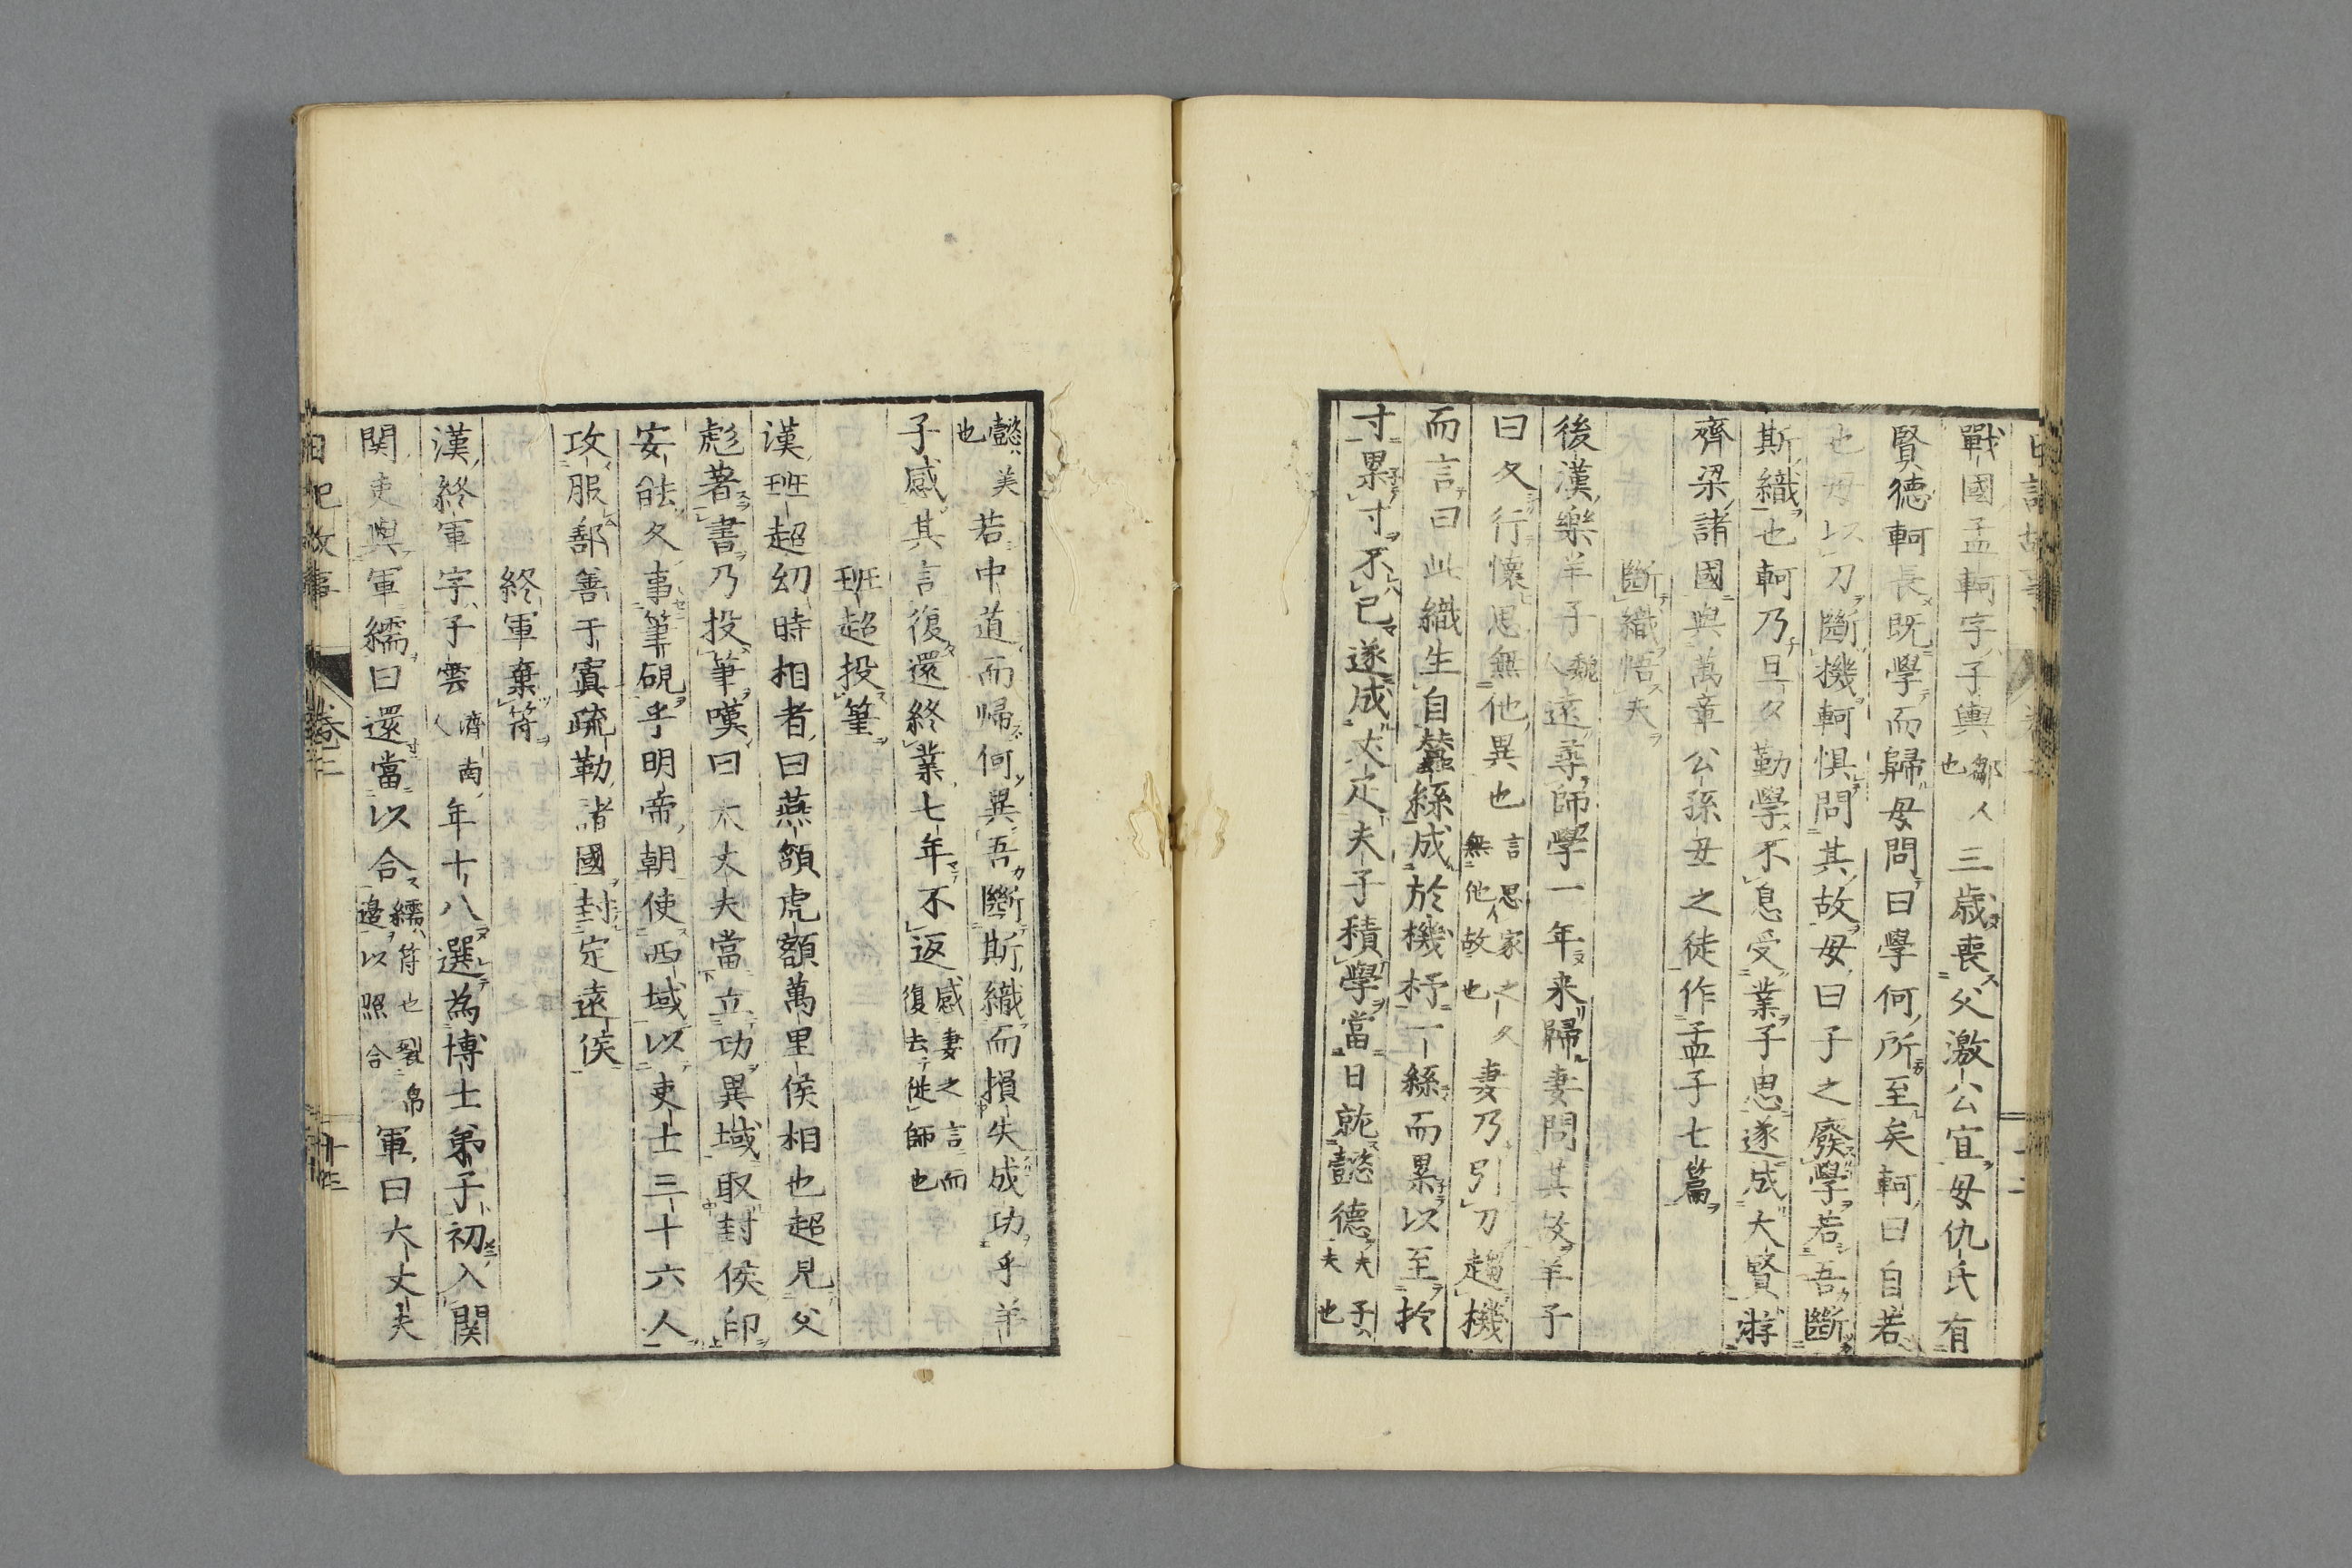 戰國孟軻字子輿鄒人也三歳喪父激公宜母仇氏有
賢德軻長既學而歸母問曰學何所至矣軻曰自若
也母以刀斷機軻惧問其故母曰子之廢學若吾斷
斯織也軻乃旦夕勤學不息受業子思遂成大賢游
齊梁諸國與萬章公孫丑之徒作孟子七篇
斷織悟夫
後漢樂羊子魏人遠尋師學一年来歸妻問其故羊子
曰久行懐思無他異也言思家之久無他故也妻乃引刀趨機
而言曰此織生自蠶絲成於機杼一絲而累以至於
寸累寸不已遂成丈疋夫子積學當日就懿德夫子夫也
懿美也若中道而帰何異吾斷斯織而損失成功乎羊
子感其言復還終業七年不返感妻之言而復去從師也
班超投筆
漢班超幼時相者曰燕頷虎額萬里侯相也超見父
彪著書乃投筆嘆曰大丈夫當立功異域取封侯印
安能久事筆硯乎明帝朝使西域以吏士三十六人
攻服鄯善于寘疏勒諸國封定遠侯
終軍棄符
漢終軍字子雲濟南人年十八選為博士弟子初入関
関吏與軍繻曰還當以合繻符也裂帛邊以照合軍曰大丈夫
日記故事 卷三